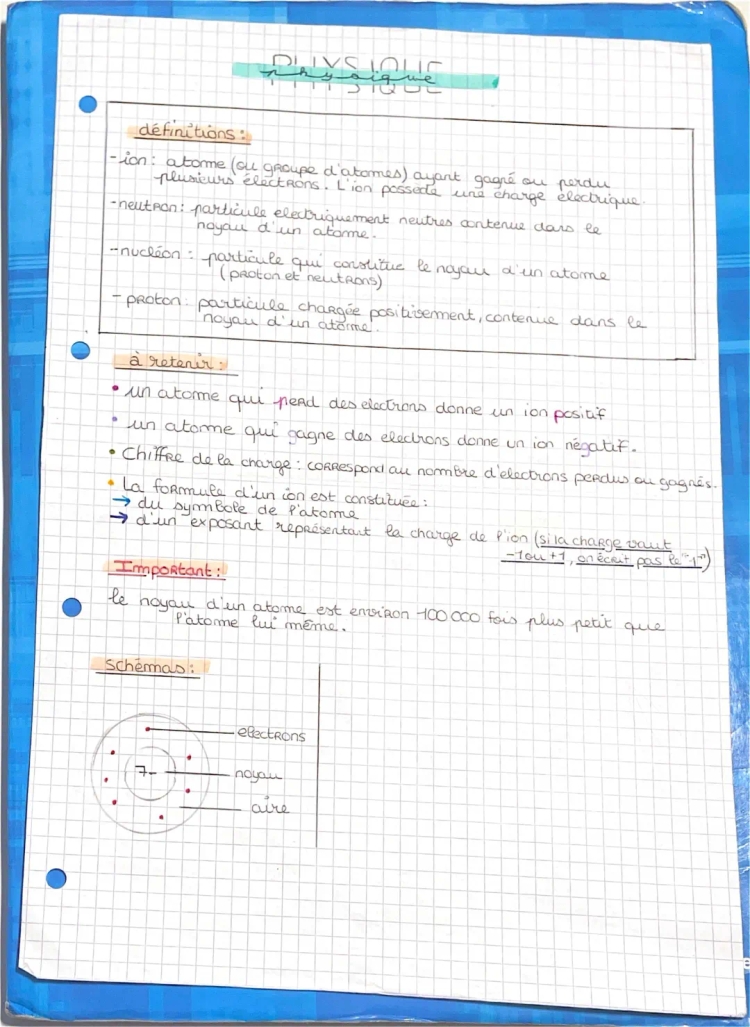 PHYSIQUE
physique
définitions :
- ion : atome (ou groupe d'atomes) ayant gagné ou perdu
plusieurs électrons. L'ion possède une charge électrique.
- neutron : particule electriquement neutres contenue dans le
noyau d'un atome.
- nucléon : particule qui constitue le noyau d'un atome
(proton et neutrons)
- proton : particule chargée positivement, contenue dans le
noyau d'un atome.
à retenir :
• un atome qui perd des electrons donne un ion positif
• un atome qui gagne des electrons donne un ion négatif.
• Chiffre de la charge : correspond au nombre d'electrons perdus ou gagnés.
• La formule d'un ion est constituée :
→ du symbole de l'atome
→ d'un exposant représentant la charge de l'ion (si la charge vaut
-1 ou +1, on écrit pas le "1")
Important :
le noyau d'un atome est environ 100 000 fois plus petit que
l'atome lui même.
schémas :
electrons
7-
noyau
aire
e